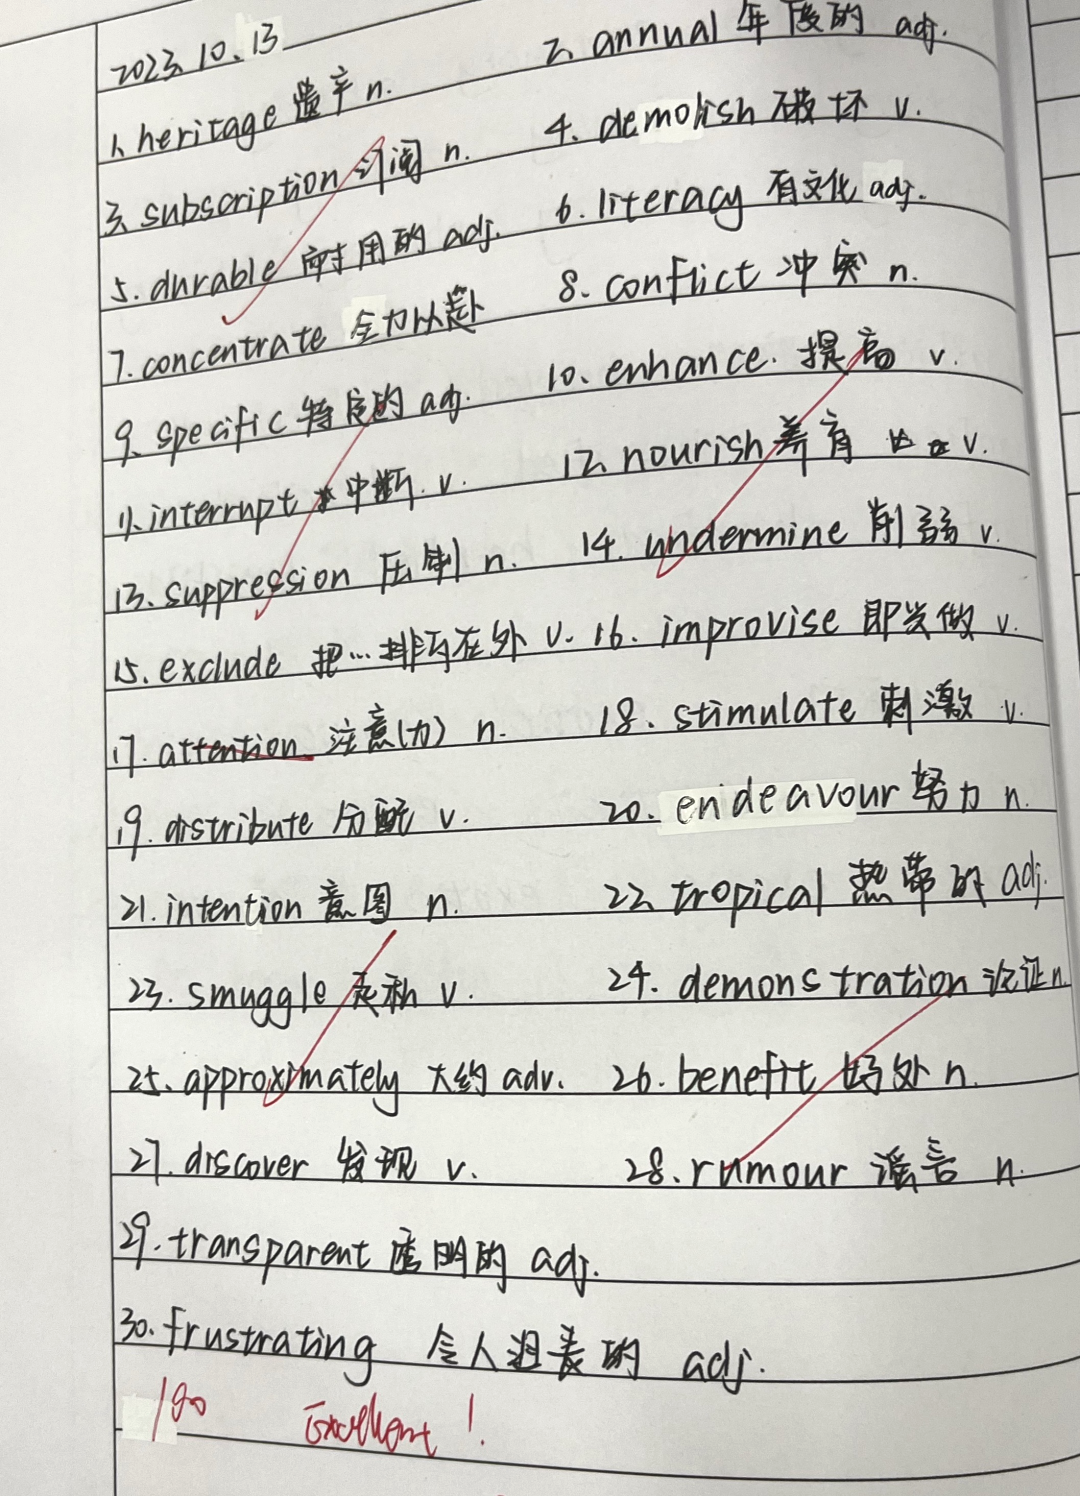 2023.10.13
1. heritage 遗产 n.
2. annual 年度的 adj.
3. subscription 订阅 n.
4. demolish 破坏 v.
5. durable 耐用的 adj.
6. literacy 有文化 adj.
7. concentrate 全力以赴
8. conflict 冲突 n.
9. specific 特定的 adj.
10. enhance. 提高 v.
11. interrupt 中断 v.
12. nourish 养育 v.
13. suppression 压制 n.
14. undermine 削弱 v.
15. exclude 把...排斥在外 v.
16. improvise 即兴做 v.
17. attention 注意(力) n.
18. stimulate 刺激 v.
19. distribute 分配 v.
20. endeavour 努力 n.
21. intention 意图 n.
22. tropical 热带的 adj.
23. smuggle 走私 v.
24. demonstration 论证 n.
25. approximately 大约 adv.
26. benefit 好处 n.
27. discover 发现 v.
28. rumour 谣言 n.
29. transparent 透明的 adj.
30. frustrating 令人沮丧的 adj.
100 Excellent!